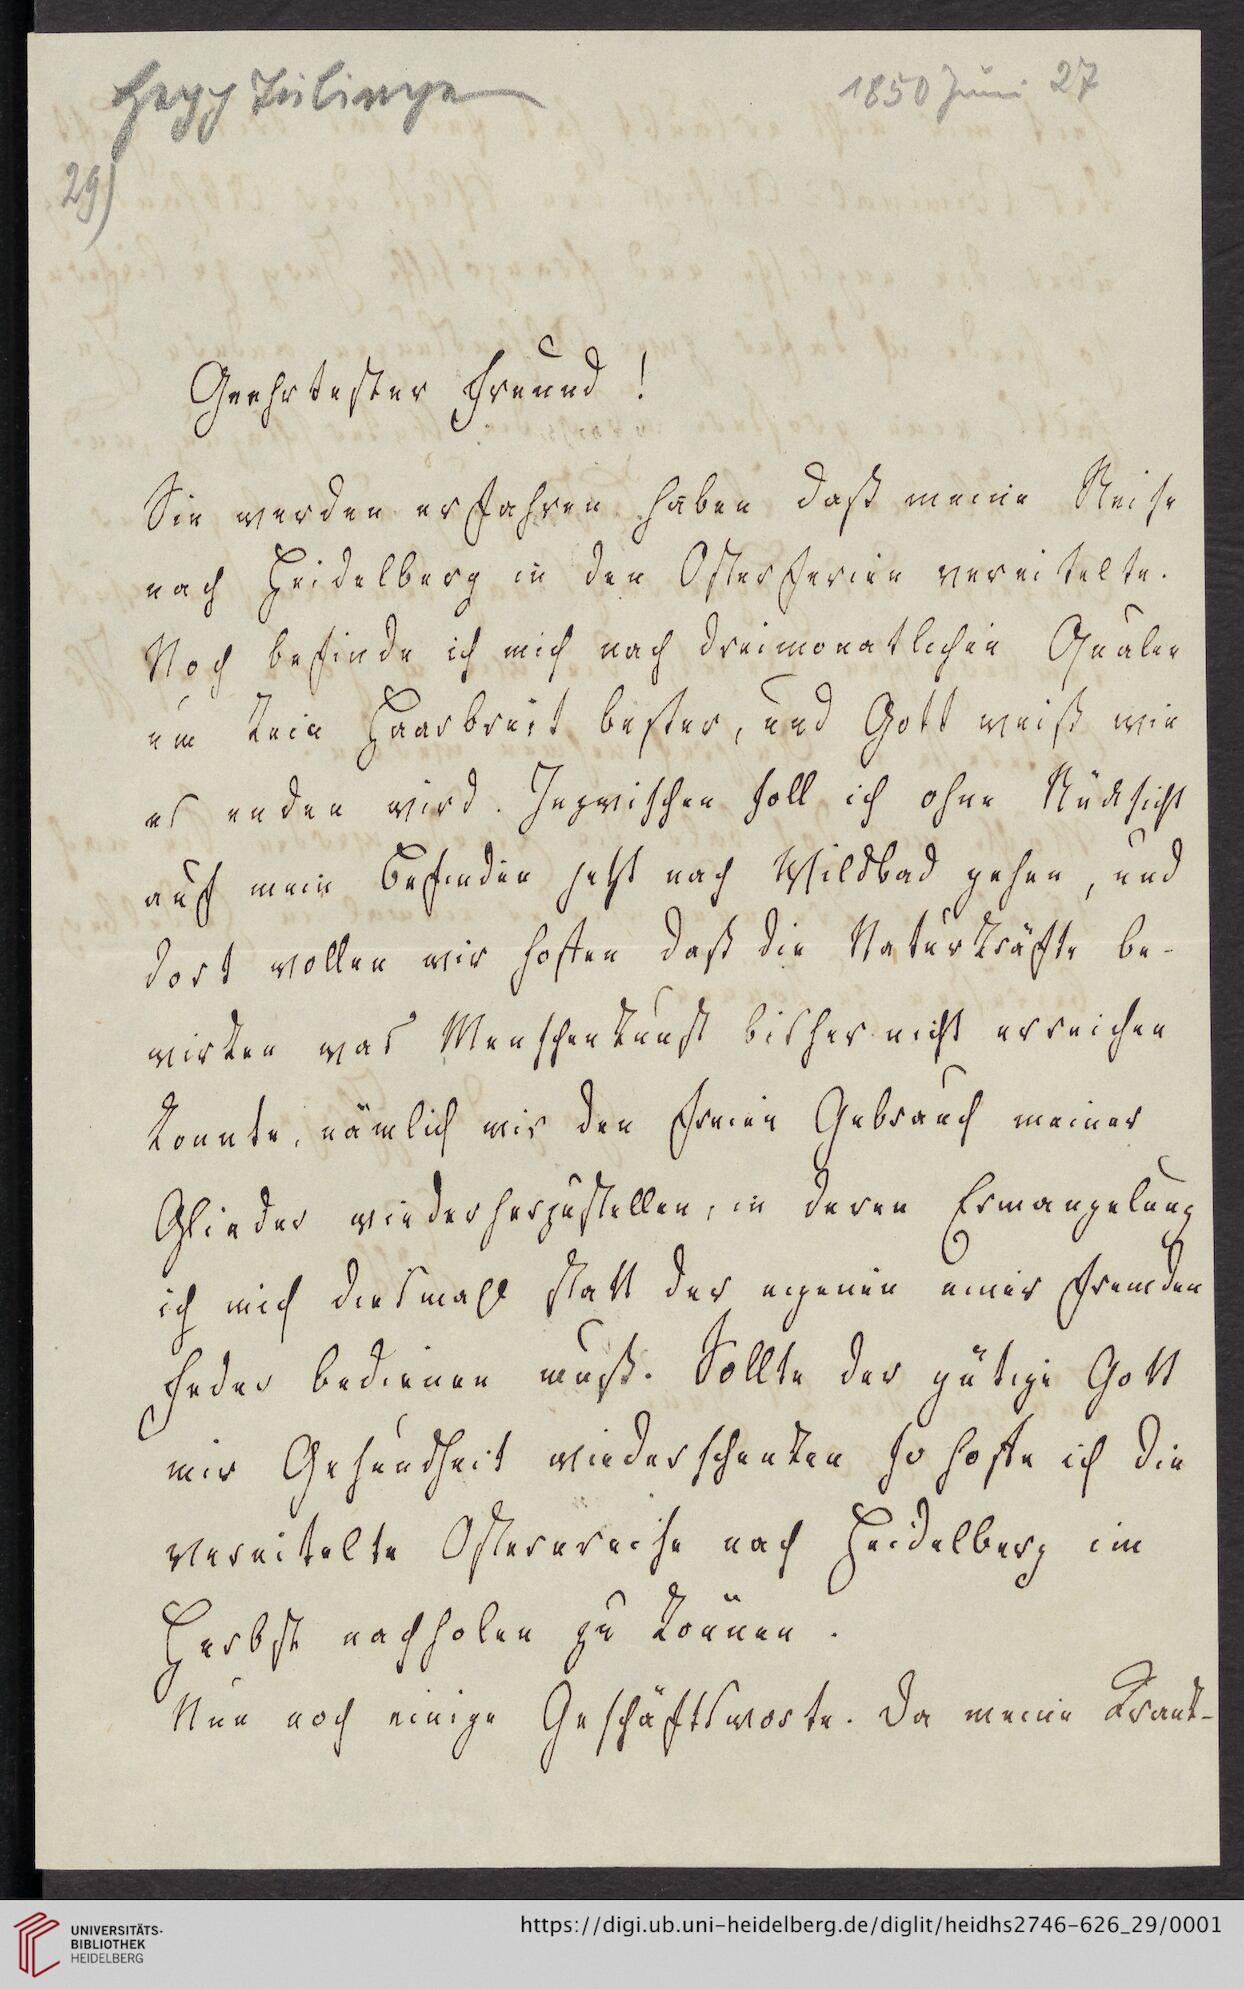 Hepp Tübingen
1850 Juni 27
29)
Geehrtester Freund!
Sie werden erfahren haben daß meine Reise
nach Heidelberg in den Osterferien vereitelte.
Noch befinde ich mich nach dreimonatlichen Qualen
um kein Haarbreit besser, und Gott weiß wie
es enden wird. Inzwischen soll ich ohne Rücksicht
auf mein Befinden jetzt nach Wildbad gehen, und
dort wollen wir hoffen daß die Naturkräfte be-
wirken was Menschenkunst bisher nicht erreichen
konnte, nämlich mir den freien Gebrauch meiner
Glieder wiederherzustellen, in deren Ermangelung
ich mich diesmahl statt der eigenen einer fremden
Feder bedienen muß. Sollte der gütige Gott
mir Gesundheit wiederschenken so hoffe ich die
vereitelte Osterreise nach Heidelberg im
Herbst nachholen zu können.
Nun noch einige Geschäftsworte. Da meine Krank-
UNIVERSITÄTS-
BIBLIOTHEK
HEIDELBERG
https://digi.ub.uni-heidelberg.de/diglit/heidhs2746-626_29/0001